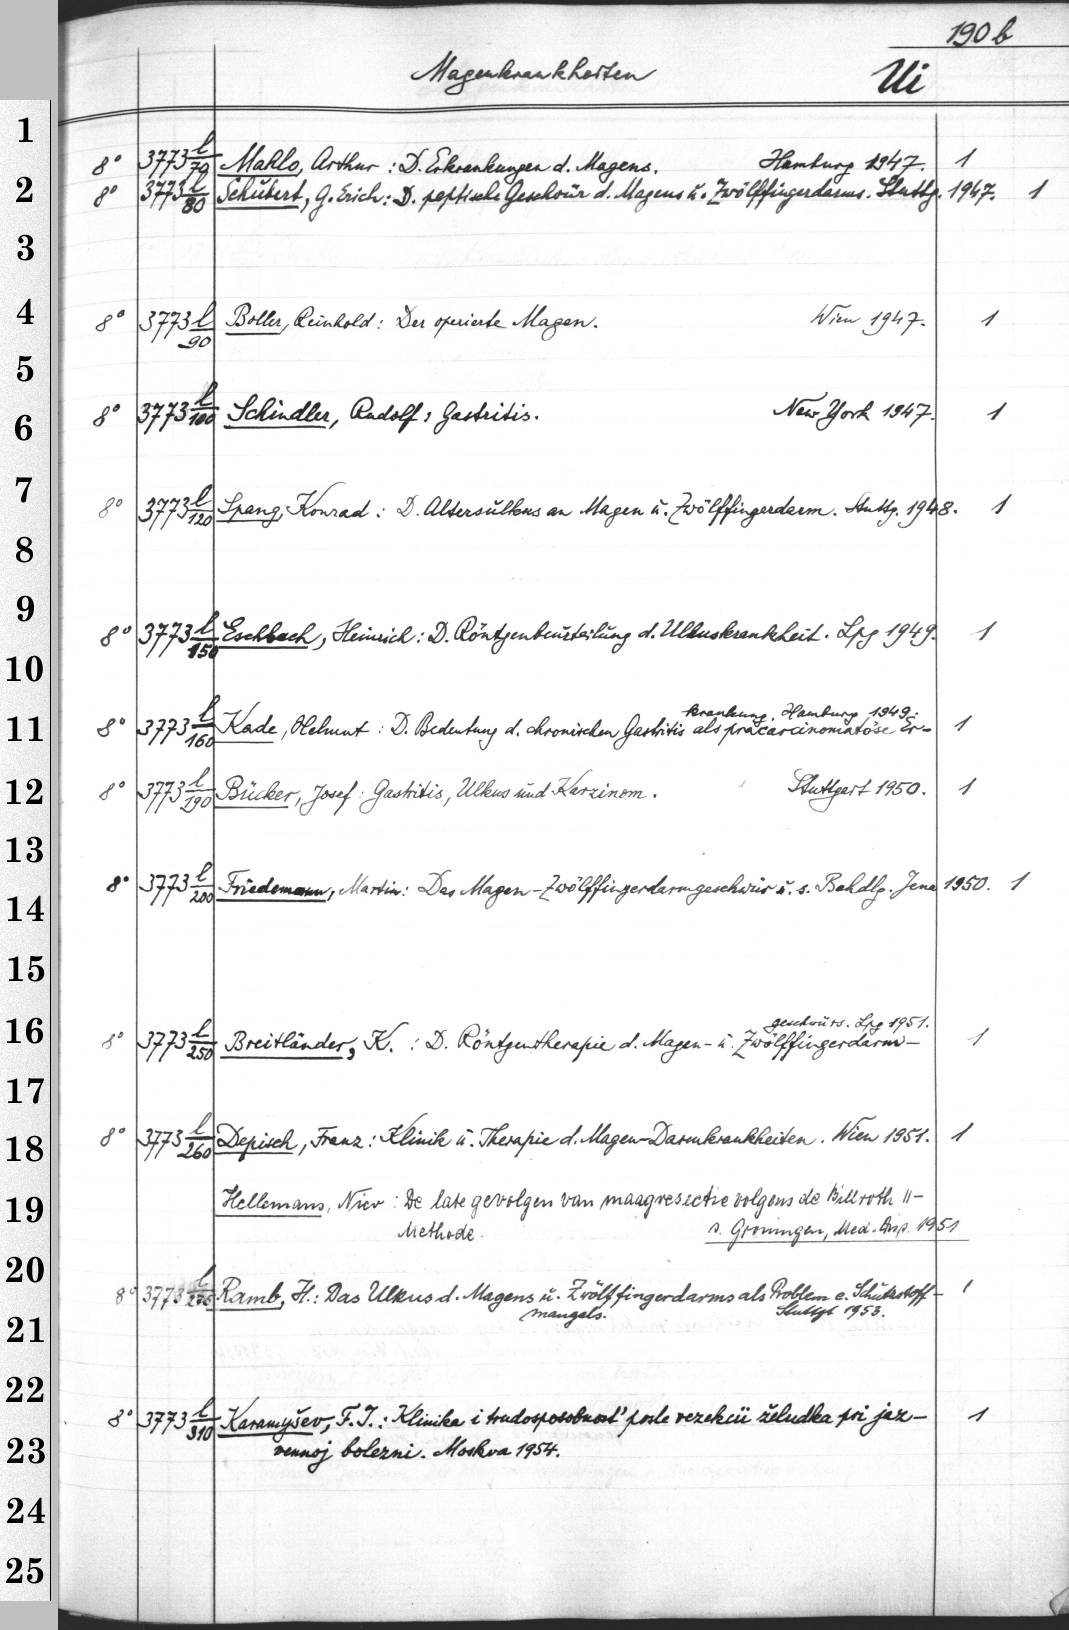 190 b
Magenkrankheiten Ui
1
8° 3773 l/79 Mahlo, Arthur : D. Erkrankungen d. Magens. Hamburg 1947. 1
2
8° 3773 l/80 Schubert, G. Erich : D. peptische Geschwür d. Magens u. Zwölffingerdarms. Stuttg. 1947. 1
3
4
8° 3773 l/90 Boller, Reinhold : Der operierte Magen. Wien 1947. 1
5
6
8° 3773 l/100 Schindler, Rudolf : Gastritis. New York 1947. 1
7
8° 3773 l/120 Spang, Konrad : D. Altersulkus an Magen u. Zwölffingerdarm. Stuttg. 1948. 1
8
9
8° 3773 l/150 Eschbach, Heinrich : D. Röntgenbeurteilung d. Ulkuskrankheit. Lpg 1949. 1
10
11
8° 3773 l/160 Kade, Helmut : D. Bedeutung d. chronischen Gastritis als präcarcinomatöse Er-
krankung. Hamburg 1949. 1
12
8° 3773 l/190 Bücker, Josef : Gastritis, Ulkus und Karzinom. Stuttgart 1950. 1
13
14
8° 3773 l/200 Friedemann, Martin : Das Magen-Zwölffingerdarmgeschwür u. s. Behdlg. Jena 1950. 1
15
16
8° 3773 l/250 Breitländer, K. : D. Röntgentherapie d. Magen- u. Zwölffingerdarm-
geschwürs. Lpg 1951. 1
17
18
8° 3773 l/260 Depisch, Franz : Klinik u. Therapie d. Magen-Darmkrankheiten. Wien 1951. 1
19
Hellemans, Nico : De late gevolgen van maagresectie volgens de Billroth II-
Methode. s. Groningen, Med. Diss. 1951
20
8° 3773 l/275 Ramb, H. : Das Ulkus d. Magens u. Zwölffingerdarms als Problem e. Schutzstoff-
mangels. Stuttgt 1953. 1
21
22
8° 3773 l/310 Karamyšev, F. I. : Klinika i trudosposobnost' posle rezekcii želudka pri jaz-
23
vennoj bolezni. Moskva 1954. 1
24
25